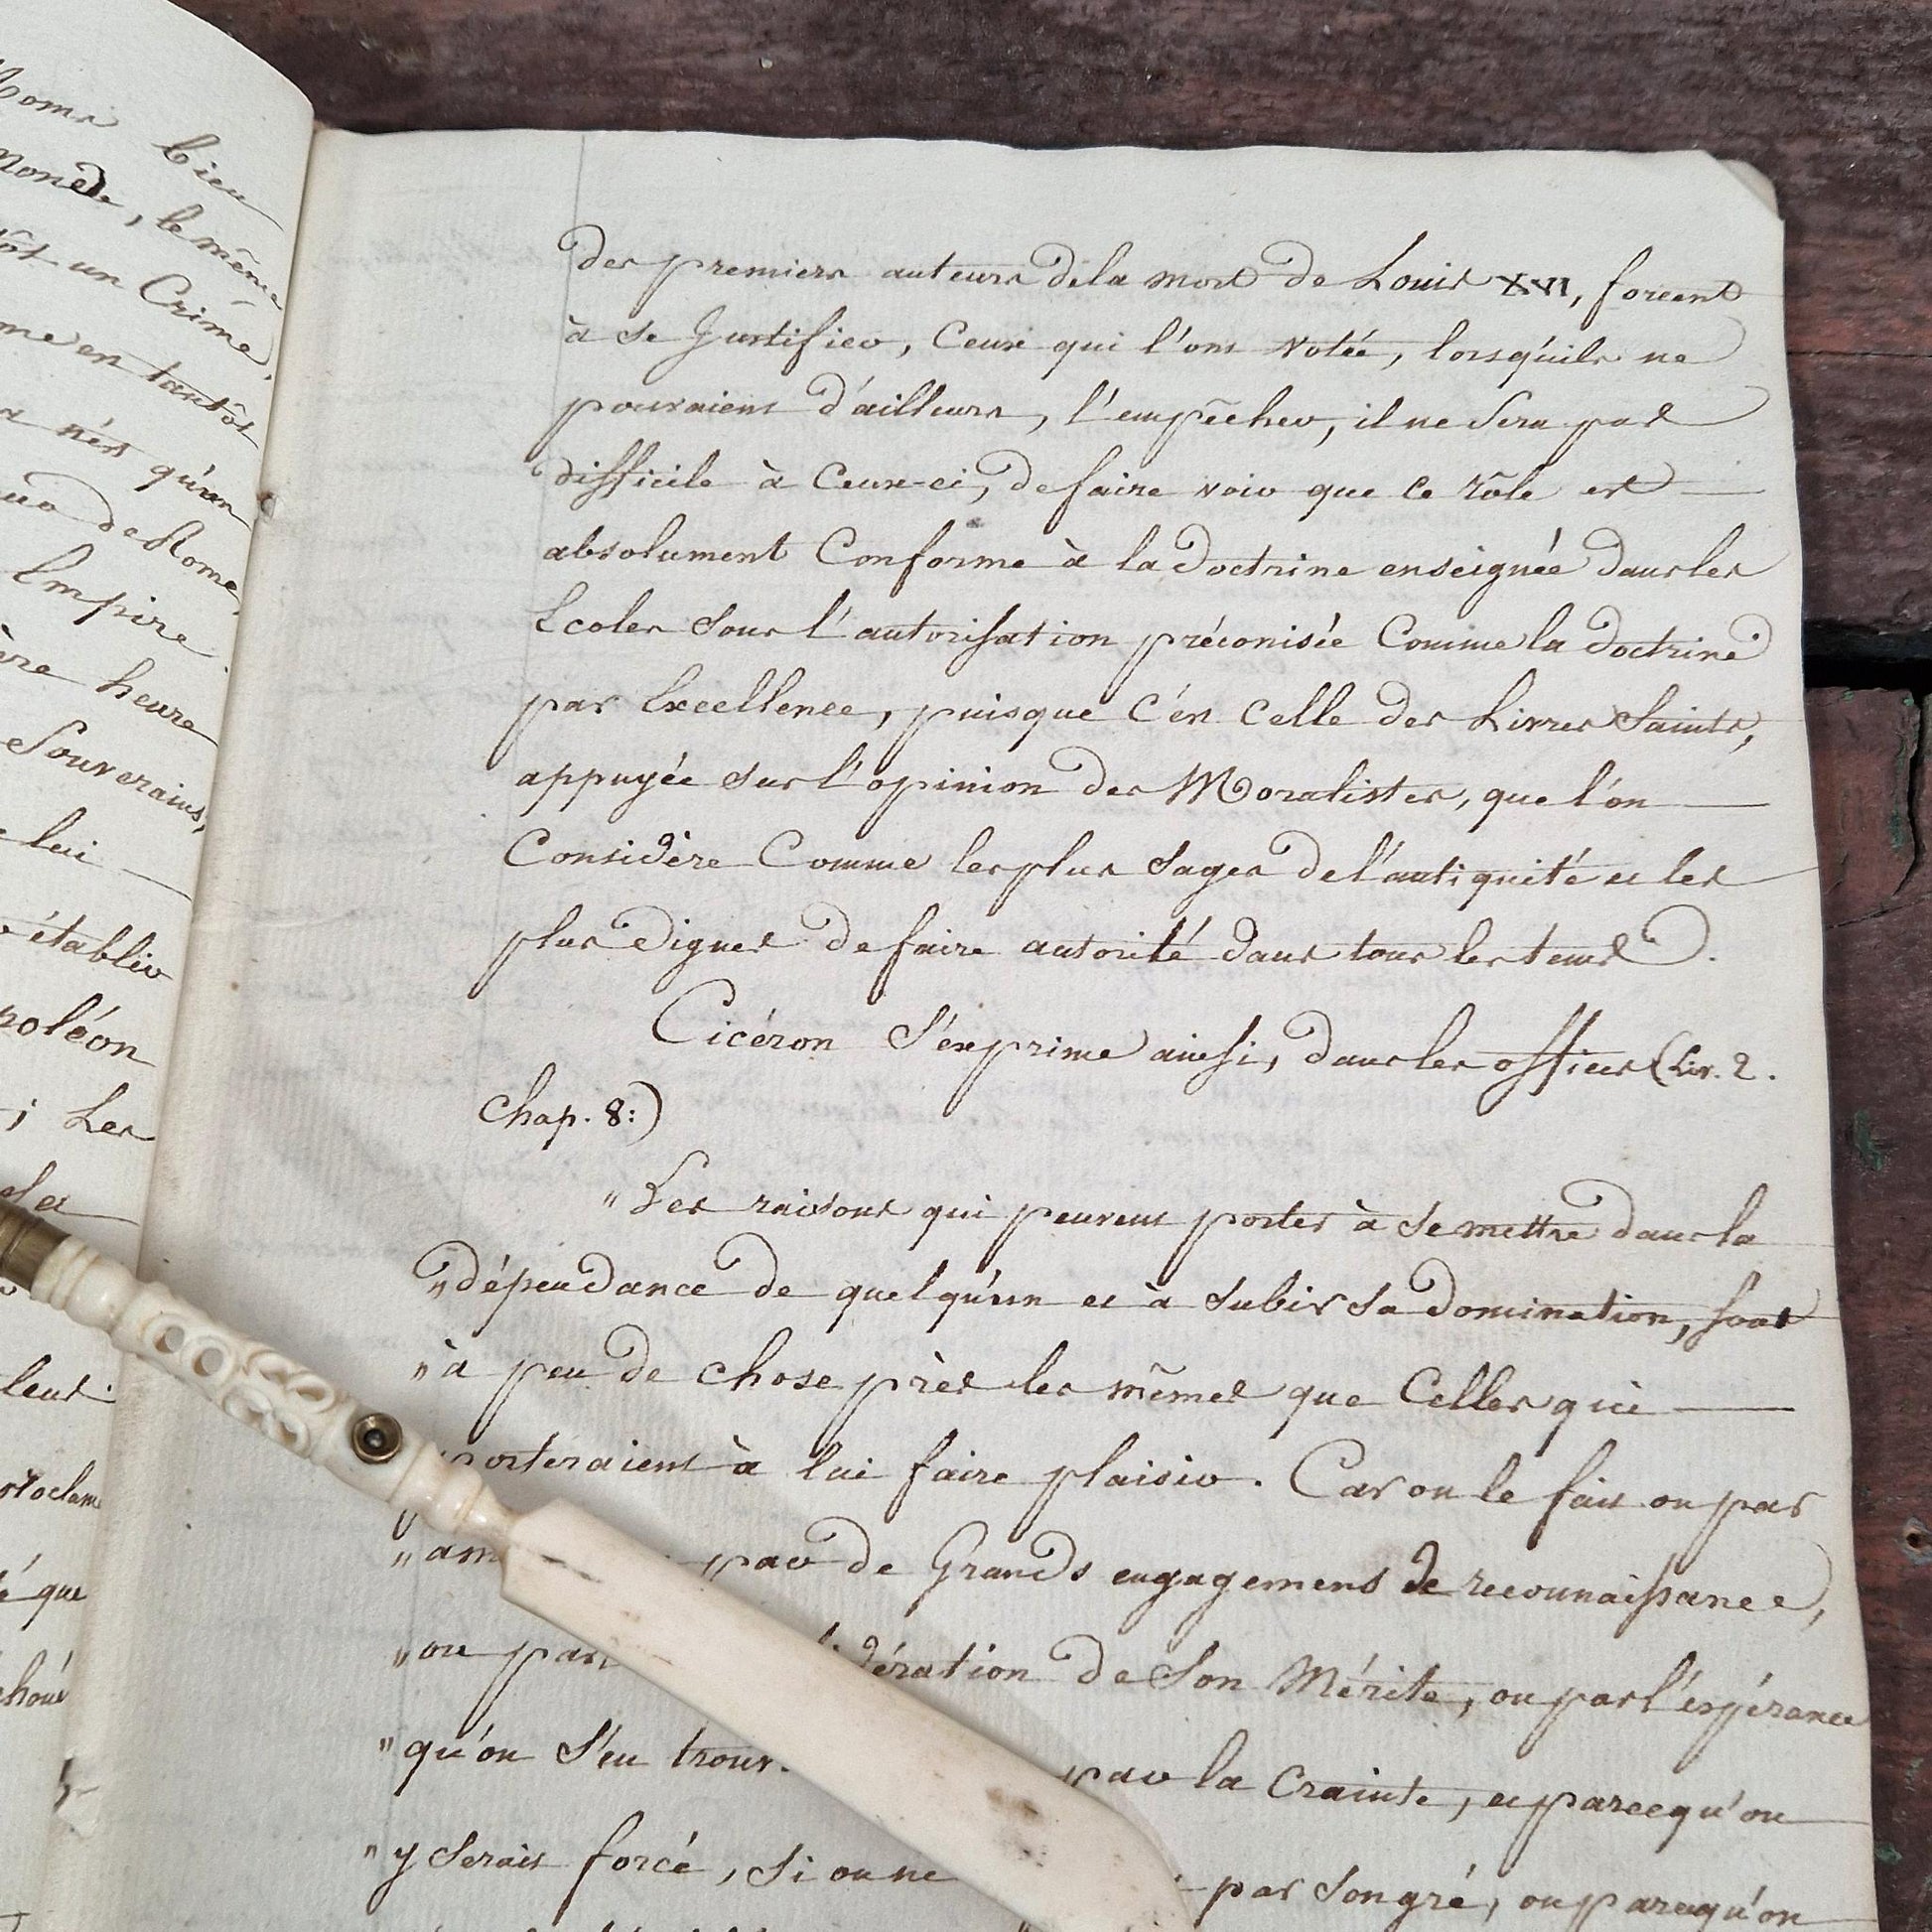 Rome bien
Monde, le même
un Crime,
en tantôt
nés qu'un
de Rome,
Empire
heure
Souverains,
lui
établir
; Les
Sa
leur
que
des premiers auteurs de la mort de Louis XVI, forcent
à se Justifier, Ceux qui l'ont votée, lorsqu'ils ne
pouvaient d'ailleurs, l'empêcher, il ne Sera pas
difficile à Ceux-ci, de faire voir que ce rôle est —
absolument Conforme à la doctrine enseignée dans les
Ecoles Sous l'autorisation préconisée Comme la doctrine
par Excellence, puisque C'est Celle des Livres Saints,
appuyée sur l'opinion des Moralistes, que l'on —
Considère Comme les plus Sages de l'antiquité et les
plus Dignes de faire autorité dans tous les tems.
Cicéron S'exprime ainsi, dans les offices (Liv. 2.
Chap. 8:)
" Les raisons qui peuvent porter à Se mettre dans la
" dépendance de quelqu'un et à Subir Sa domination, Sont
" à peu de chose près les mêmes que Celles qui —
porteraient à lui faire plaisir. Car on le fait ou par
" par de Grands engagemens de reconnaissance,
" ou par de Son Mérite, ou par l'espérance
" qu'on S'en par la Crainte, et parcequ'on
" y Serait forcé, Si on ne par Son gré, ou parcequ'on